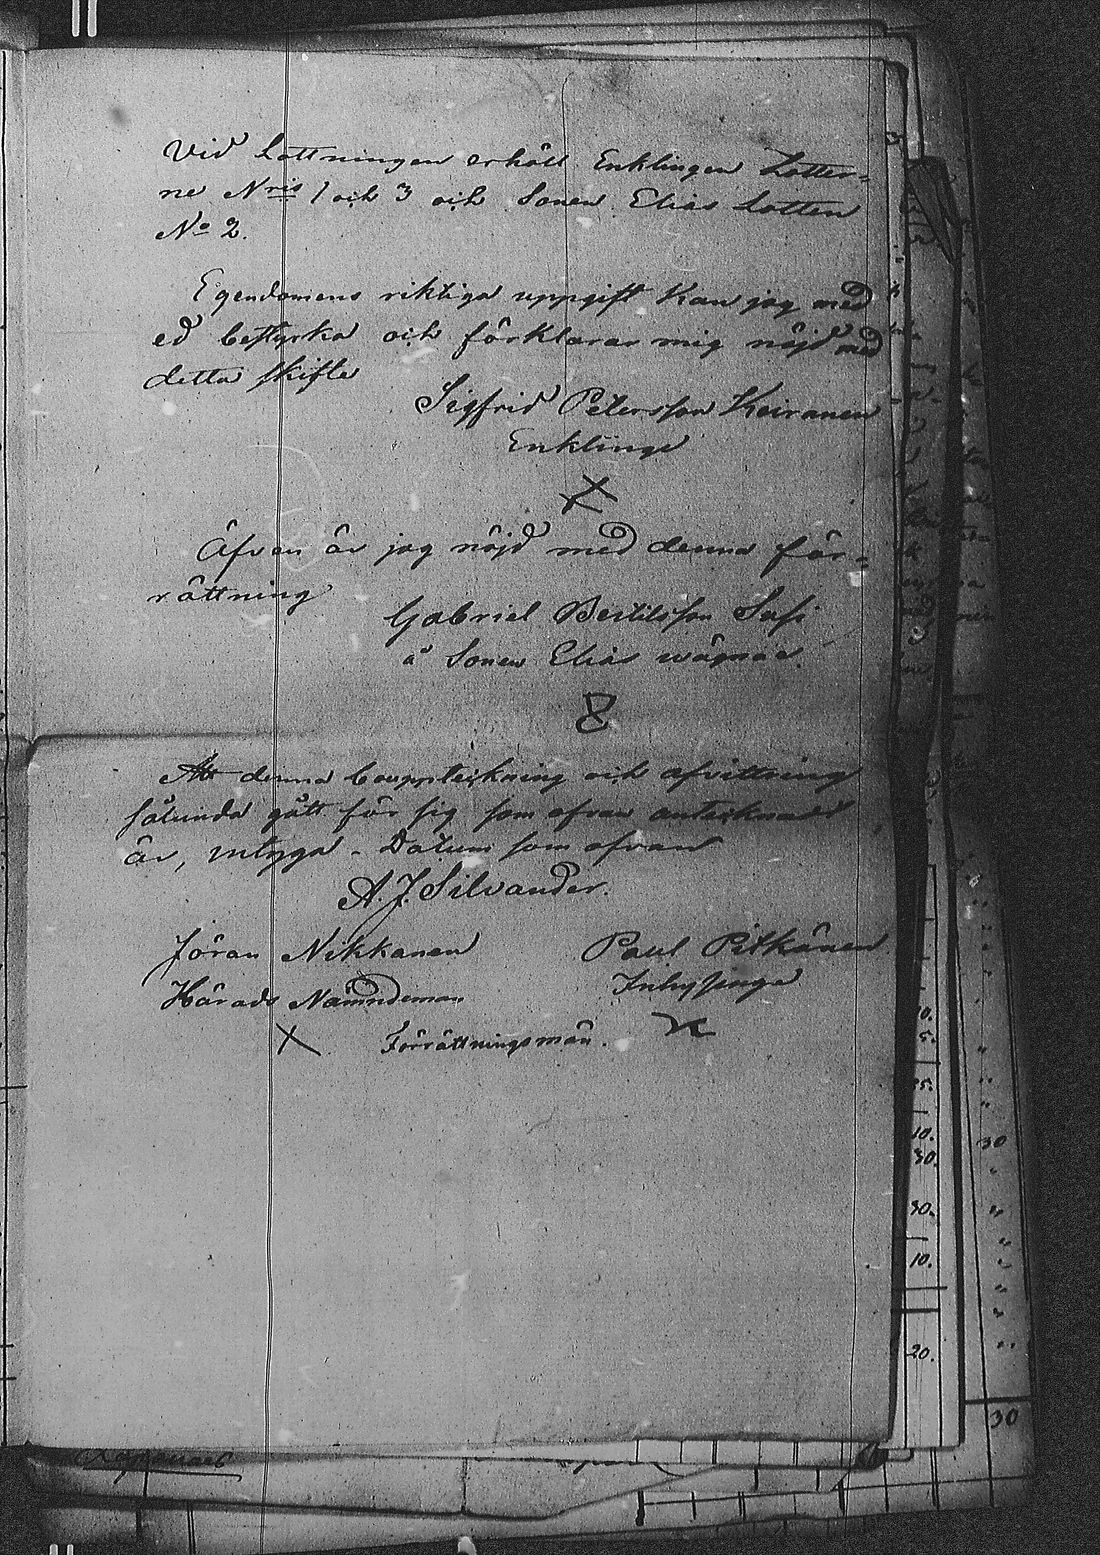 Vid Lottningen erhöll Enklingen Lotter=
ne Nris 1 och 3 och Sonen Elias Lotten
No 2.
Egendomens riktiga uppgift kan jag med
ed bestyrka och förklarar mig nöjd med
detta skifte
Sigfrid Petersson Keiranen
Enklinge
X
Äfven är jag nöjd med denna för=
rättning
Gabriel Bertilsson Susi
å Sonen Elias wägnar.
Att denna bouppteckning och afvittring
sålunda gått för sig som ofvan antecknadt
är, intyga. Datum som ofvan
A. J. Silvander.
Jöran Nikkanen Paul Pitkänen
Härads Nämndeman Inhysinge
X
Förrättningsmän.
10.
5.
25.
10.
30.
30
30.
10.
20.
30